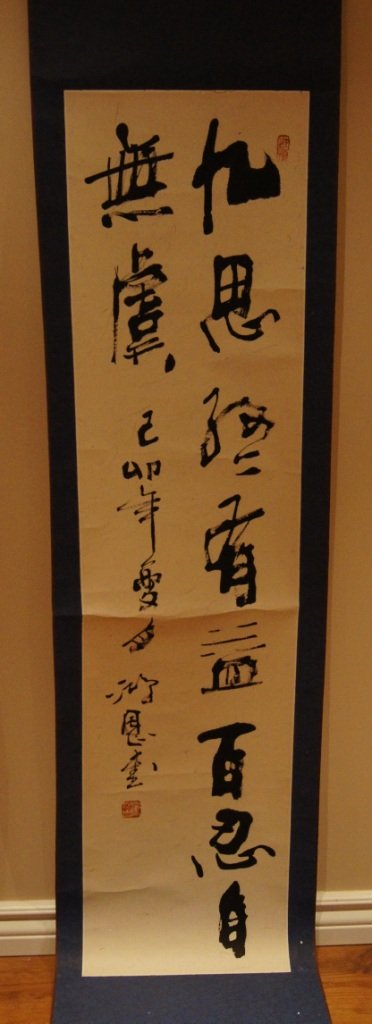 九思終有益百忍自
無虞 己卯年夏月 恩書